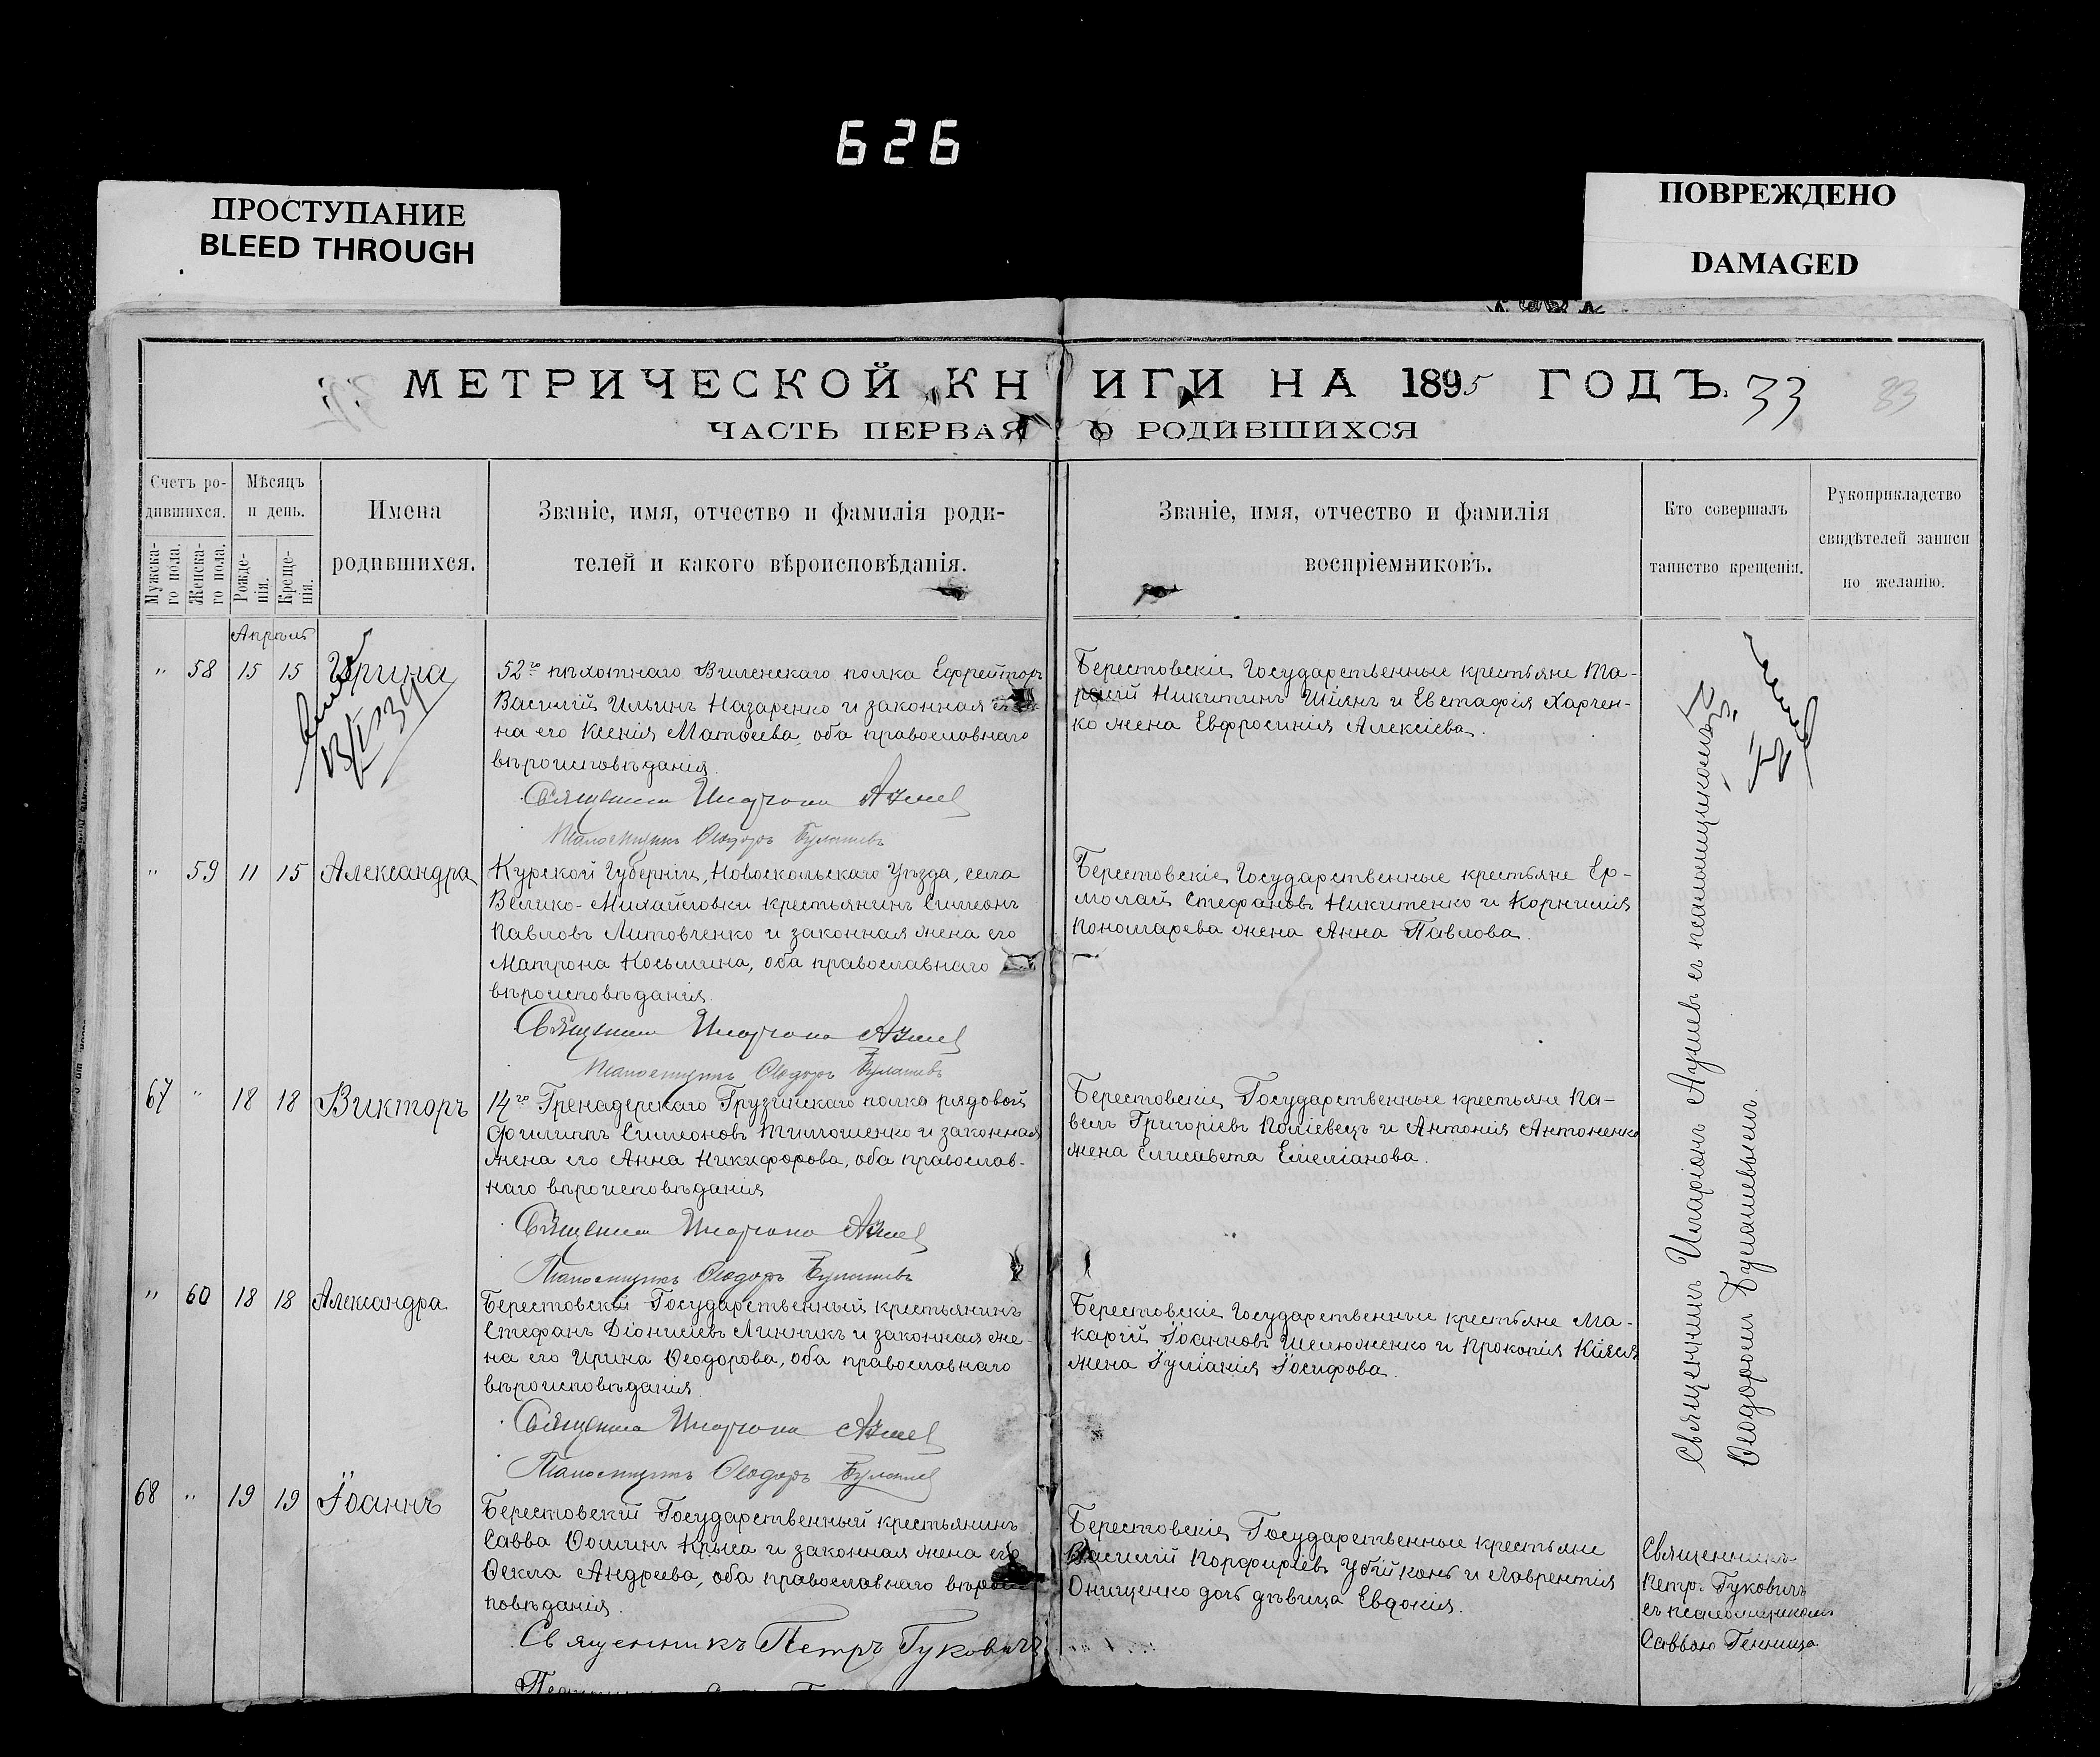 626
ПРОСТУПАНИЕ
BLEED THROUGH
ПОВРЕЖДЕНО
DAMAGED
МЕТРИЧЕСКОЙ КНИГИ НА 1895 ГОДЪ. 33
83
ЧАСТЬ ПЕРВАЯ О РОДИВШИХСЯ
Счетъ ро-
дившихся.
Мужска-
го пола.
Женска-
го пола.
Мѣсяцъ
и день.
Рожде-
нія.
Креще-
нія.
Имена
родившихся.
Званіе, имя, отчество и фамилія роди-
телей и какого вѣроисповѣданія.
Званіе, имя, отчество и фамилія
воспріемниковъ.
Кто совершалъ
таинство крещенія.
Рукоприкладство
свидѣтелей записи
по желанію.
Апрѣль
" 58 15 15 Ирина
52го пѣхотнаго Виленскаго полка Ефрейторъ
Василій Ильинъ Назаренко и законная же-
на его Ксенія Матѳеева, оба православнаго
вѣроисповѣданія.
Священникъ Иларіонъ
Псаломщикъ Ѳеодоръ Булашевъ
Берестовскіе Государственные крестьяне
Никитинъ Шіянъ и Евстафія Харчен-
ко жена Евфросинія Алексіева.
" 59 11 15 Александра
Курской Губерніи, Новоскольскаго Уѣзда, села
Велико-Михайловки крестьянинъ Симеонъ
Павловъ Литовченко и законная жена его
Матрона Косьмина, оба православнаго
вѣроисповѣданія.
Священникъ Иларіонъ
Псаломщикъ Ѳеодоръ Булашевъ
Берестовскіе Государственные крестьяне Ер-
молай Стефановъ Никитенко и Корнилія
Пономарева жена Анна Павлова.
67 " 18 18 Викторъ
14го Гренадерскаго Грузинскаго полка рядовой
Филиппъ Симеоновъ Тимошенко и законная
жена его Анна Никифорова, оба православ-
наго вѣроисповѣданія
Священникъ Иларіонъ
Псаломщикъ Ѳеодоръ Булашевъ
Берестовскіе Государственные крестьяне Па-
велъ Григоріевъ Поліевецъ и Антонія Антоненко
жена Елисавета Емеліанова.
" 60 18 18 Александра
Берестовскій Государственный крестьянинъ
Стефанъ Діонисіевъ Линникъ и законная же-
на его Ирина Ѳеодорова, оба православнаго
вѣроисповѣданія.
Священникъ Иларіонъ
Псаломщикъ Ѳеодоръ Булашевъ
Берестовскіе Государственные крестьяне Ма-
карій Іоанновъ Шелюженко и Прокопія Кіяся
жена Іуліанія Іосифова.
Священникъ Иларіонъ съ псаломщикомъ
Ѳеодоромъ Булашевымъ.
68 " 19 19 Іоаннъ
Берестовскій Государственный крестьянинъ
Савва Ѳоминъ Крыса и законная жена его
Ѳекла Андреева, оба православнаго вѣроис-
повѣданія.
Священникъ Петръ Гуковичъ
Берестовскіе Государственные крестьяне
Василій Порфиріевъ Убійконь и Лаврентія
Онищенко дочь дѣвица Евдокія.
Священникъ
Петръ Гуковичъ
съ псаломщикомъ
Саввою